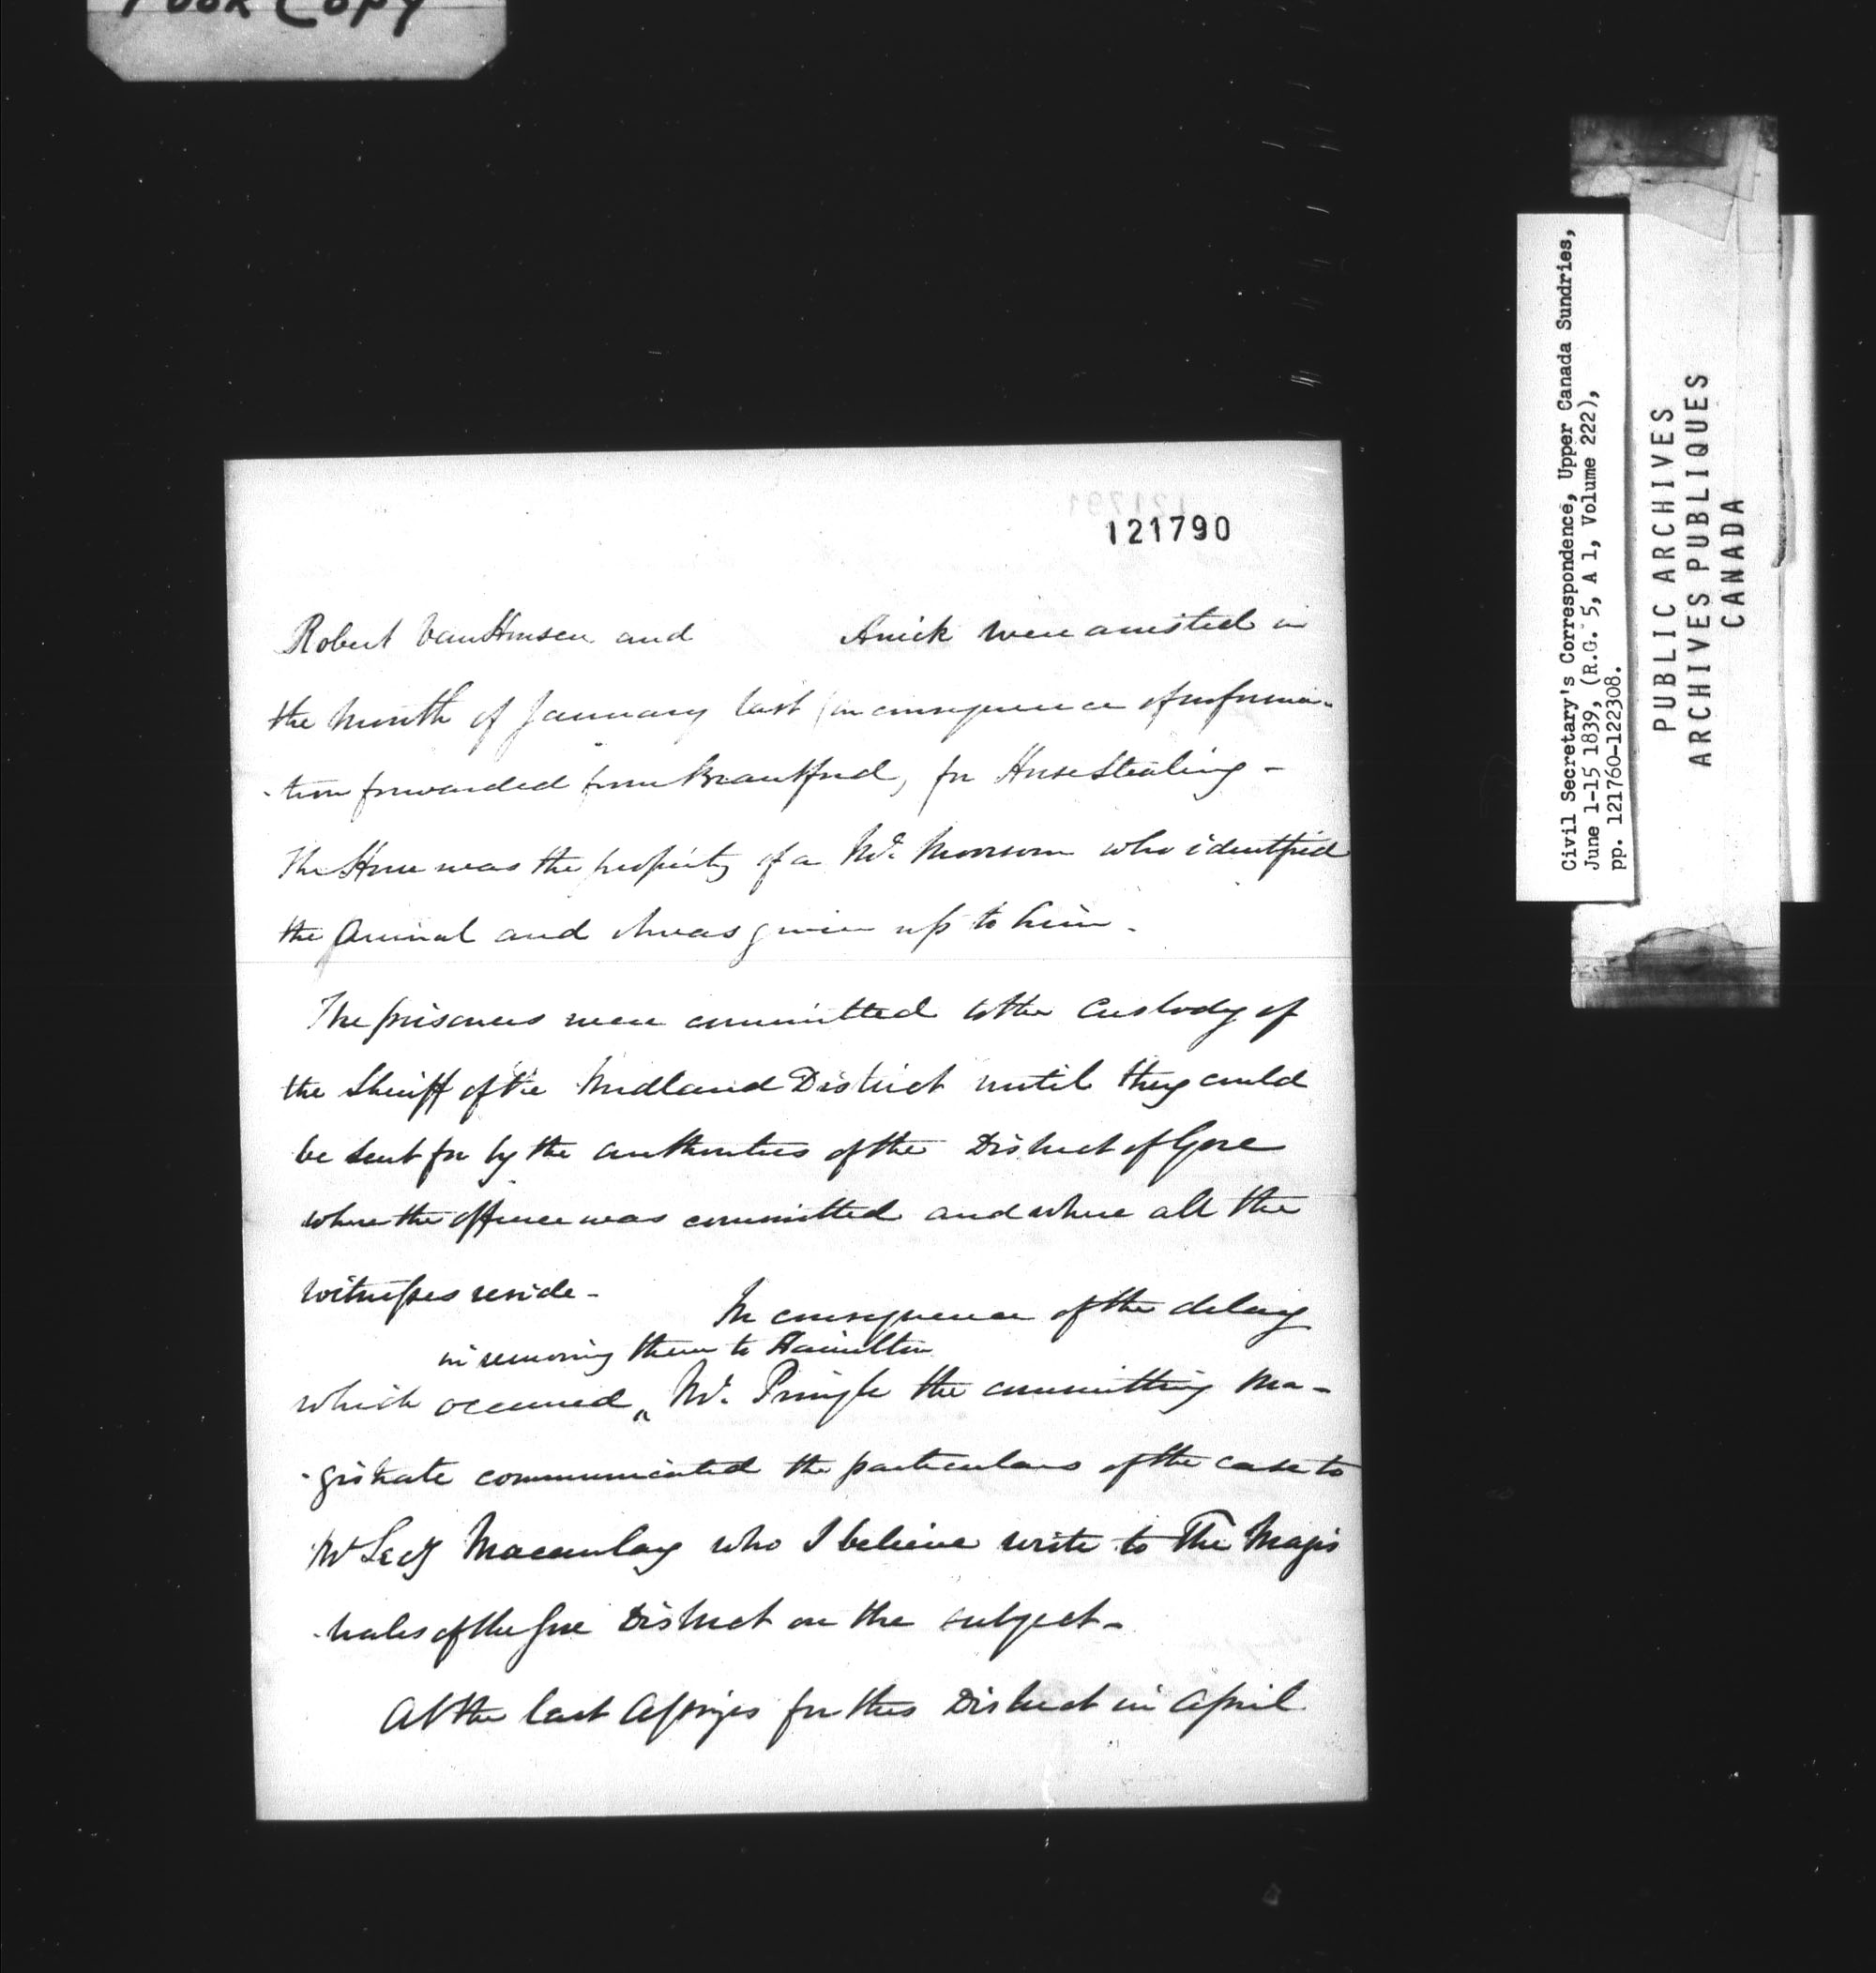 Poor Copy
121790
Robert VanHusen and Amick were arrested in
the Month of January last (in consequence of informa-
-tion forwarded from Brantford, for Horse Stealing -
The Horse was the property of a Mr. Morrison who identified
the Animal and it was given up to him -
The prisoners were committed to the Custody of
the Sheriff of the Midland District until they could
be sent for by the authorities of the District of Gore
where the offence was committed and where all the
witnesses reside -
In consequence of the delay
in removing them to Hamilton
which occurred Mr. Pringle the committing Ma-
-gistrate communicated the particulars of the case to
Mr Secy Macaulay who I believe wrote to The Magis
-trates of the Gore District on the subject -
At the last Assizes for this District in April
Civil Secretary's Correspondence, Upper Canada Sundries,
June 1-15 1839, (R.G. 5, A 1, Volume 222),
pp. 121760-122308.
PUBLIC ARCHIVES
ARCHIVES PUBLIQUES
CANADA